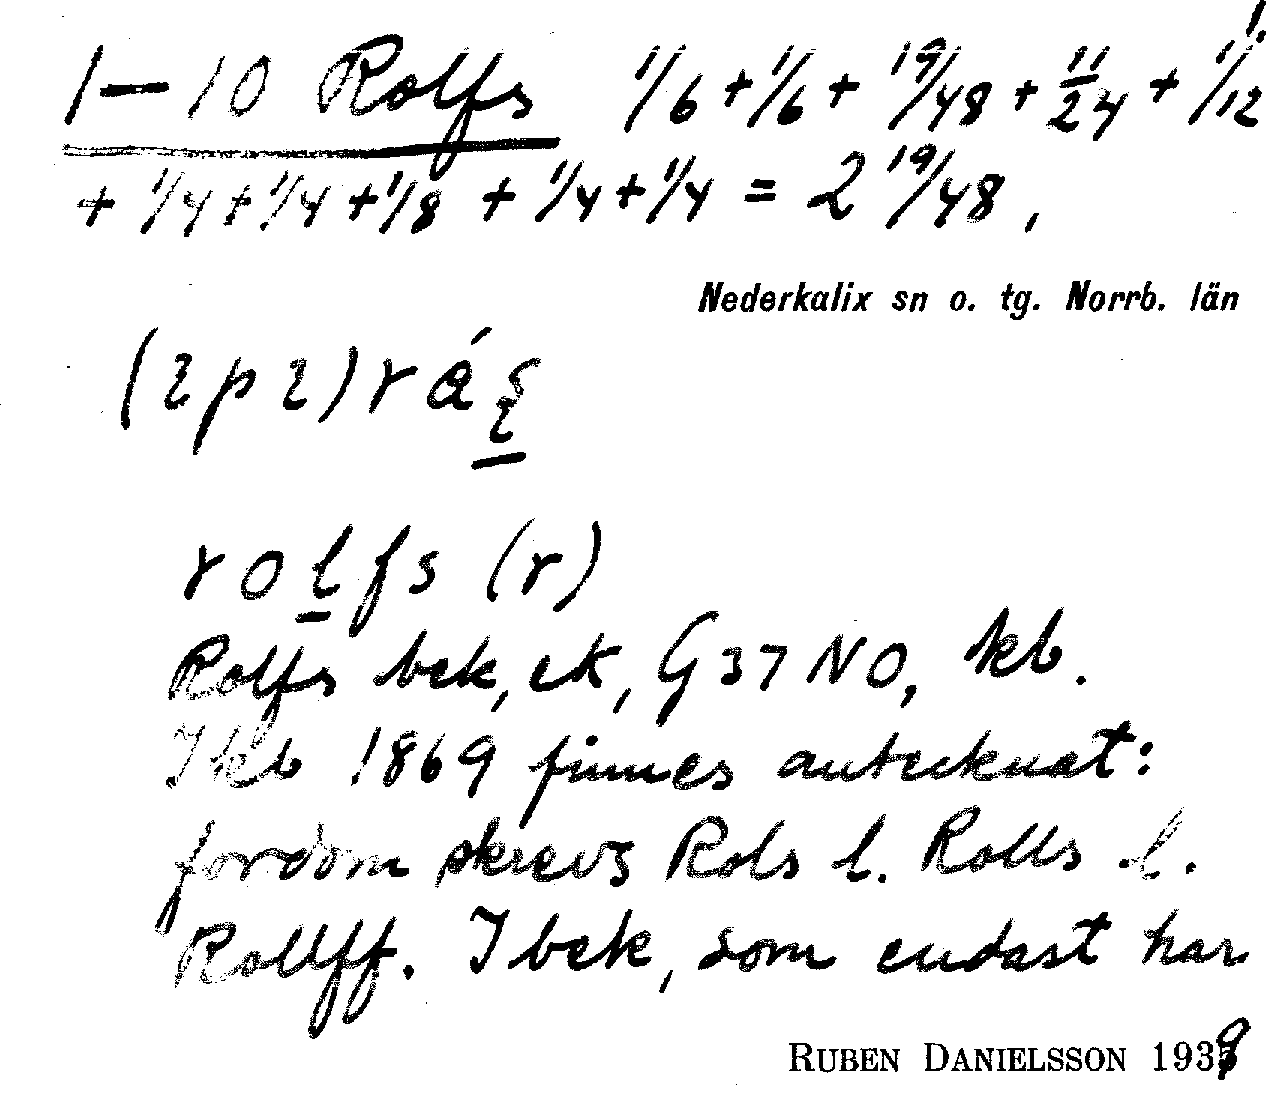 1.
1–10 Rolfs 1/6 + 1/6 + 19/48 + 11/24 + 1/12
+ 1/4 + 1/4 + 1/8 + 1/4 + 1/4 = 2 19/48,
Nederkalix sn o. tg. Norrb. län
rolfs (r)
Rolfs bek, ek, G 37 NO, kb.
I kb 1869 finnes antecknat:
fordom skrevs Rols l. Rolls l.
Rollff. I bek, som endast har
RUBEN DANIELSSON 1939